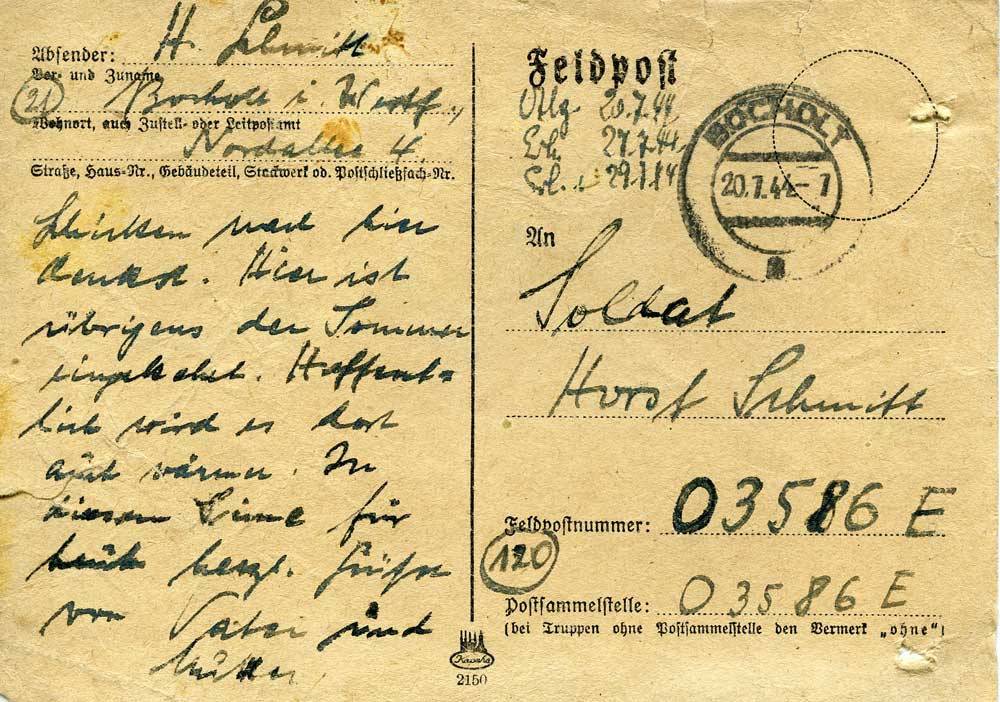 Absender: H. Schmitt
Vor- und Zuname
(21) Bocholt i. Westf.,
Wohnort, auch Zustell- oder Leitpostamt
Nordallee 4.
Straße, Haus-Nr., Gebäudeteil, Stockwerk od. Postschließfach-Nr.
hier
denkst. Hier ist
übrigens der Sommer
eingekehrt. Hoffent=
lich wird es dort
auch wärmer. In
diesem Sinne für
heute herzl. Grüße
von Vater und
Mutter.
Kawaha
2150
Feldpost
20.7.44
27.7.44
29.7.44
BOCHOLT
20.7.44-7
a
An
Soldat
Horst Schmitt
Feldpostnummer: 03586 E
120
Postsammelstelle: 03586 E
(bei Truppen ohne Postsammelstelle den Vermerk „ohne“)